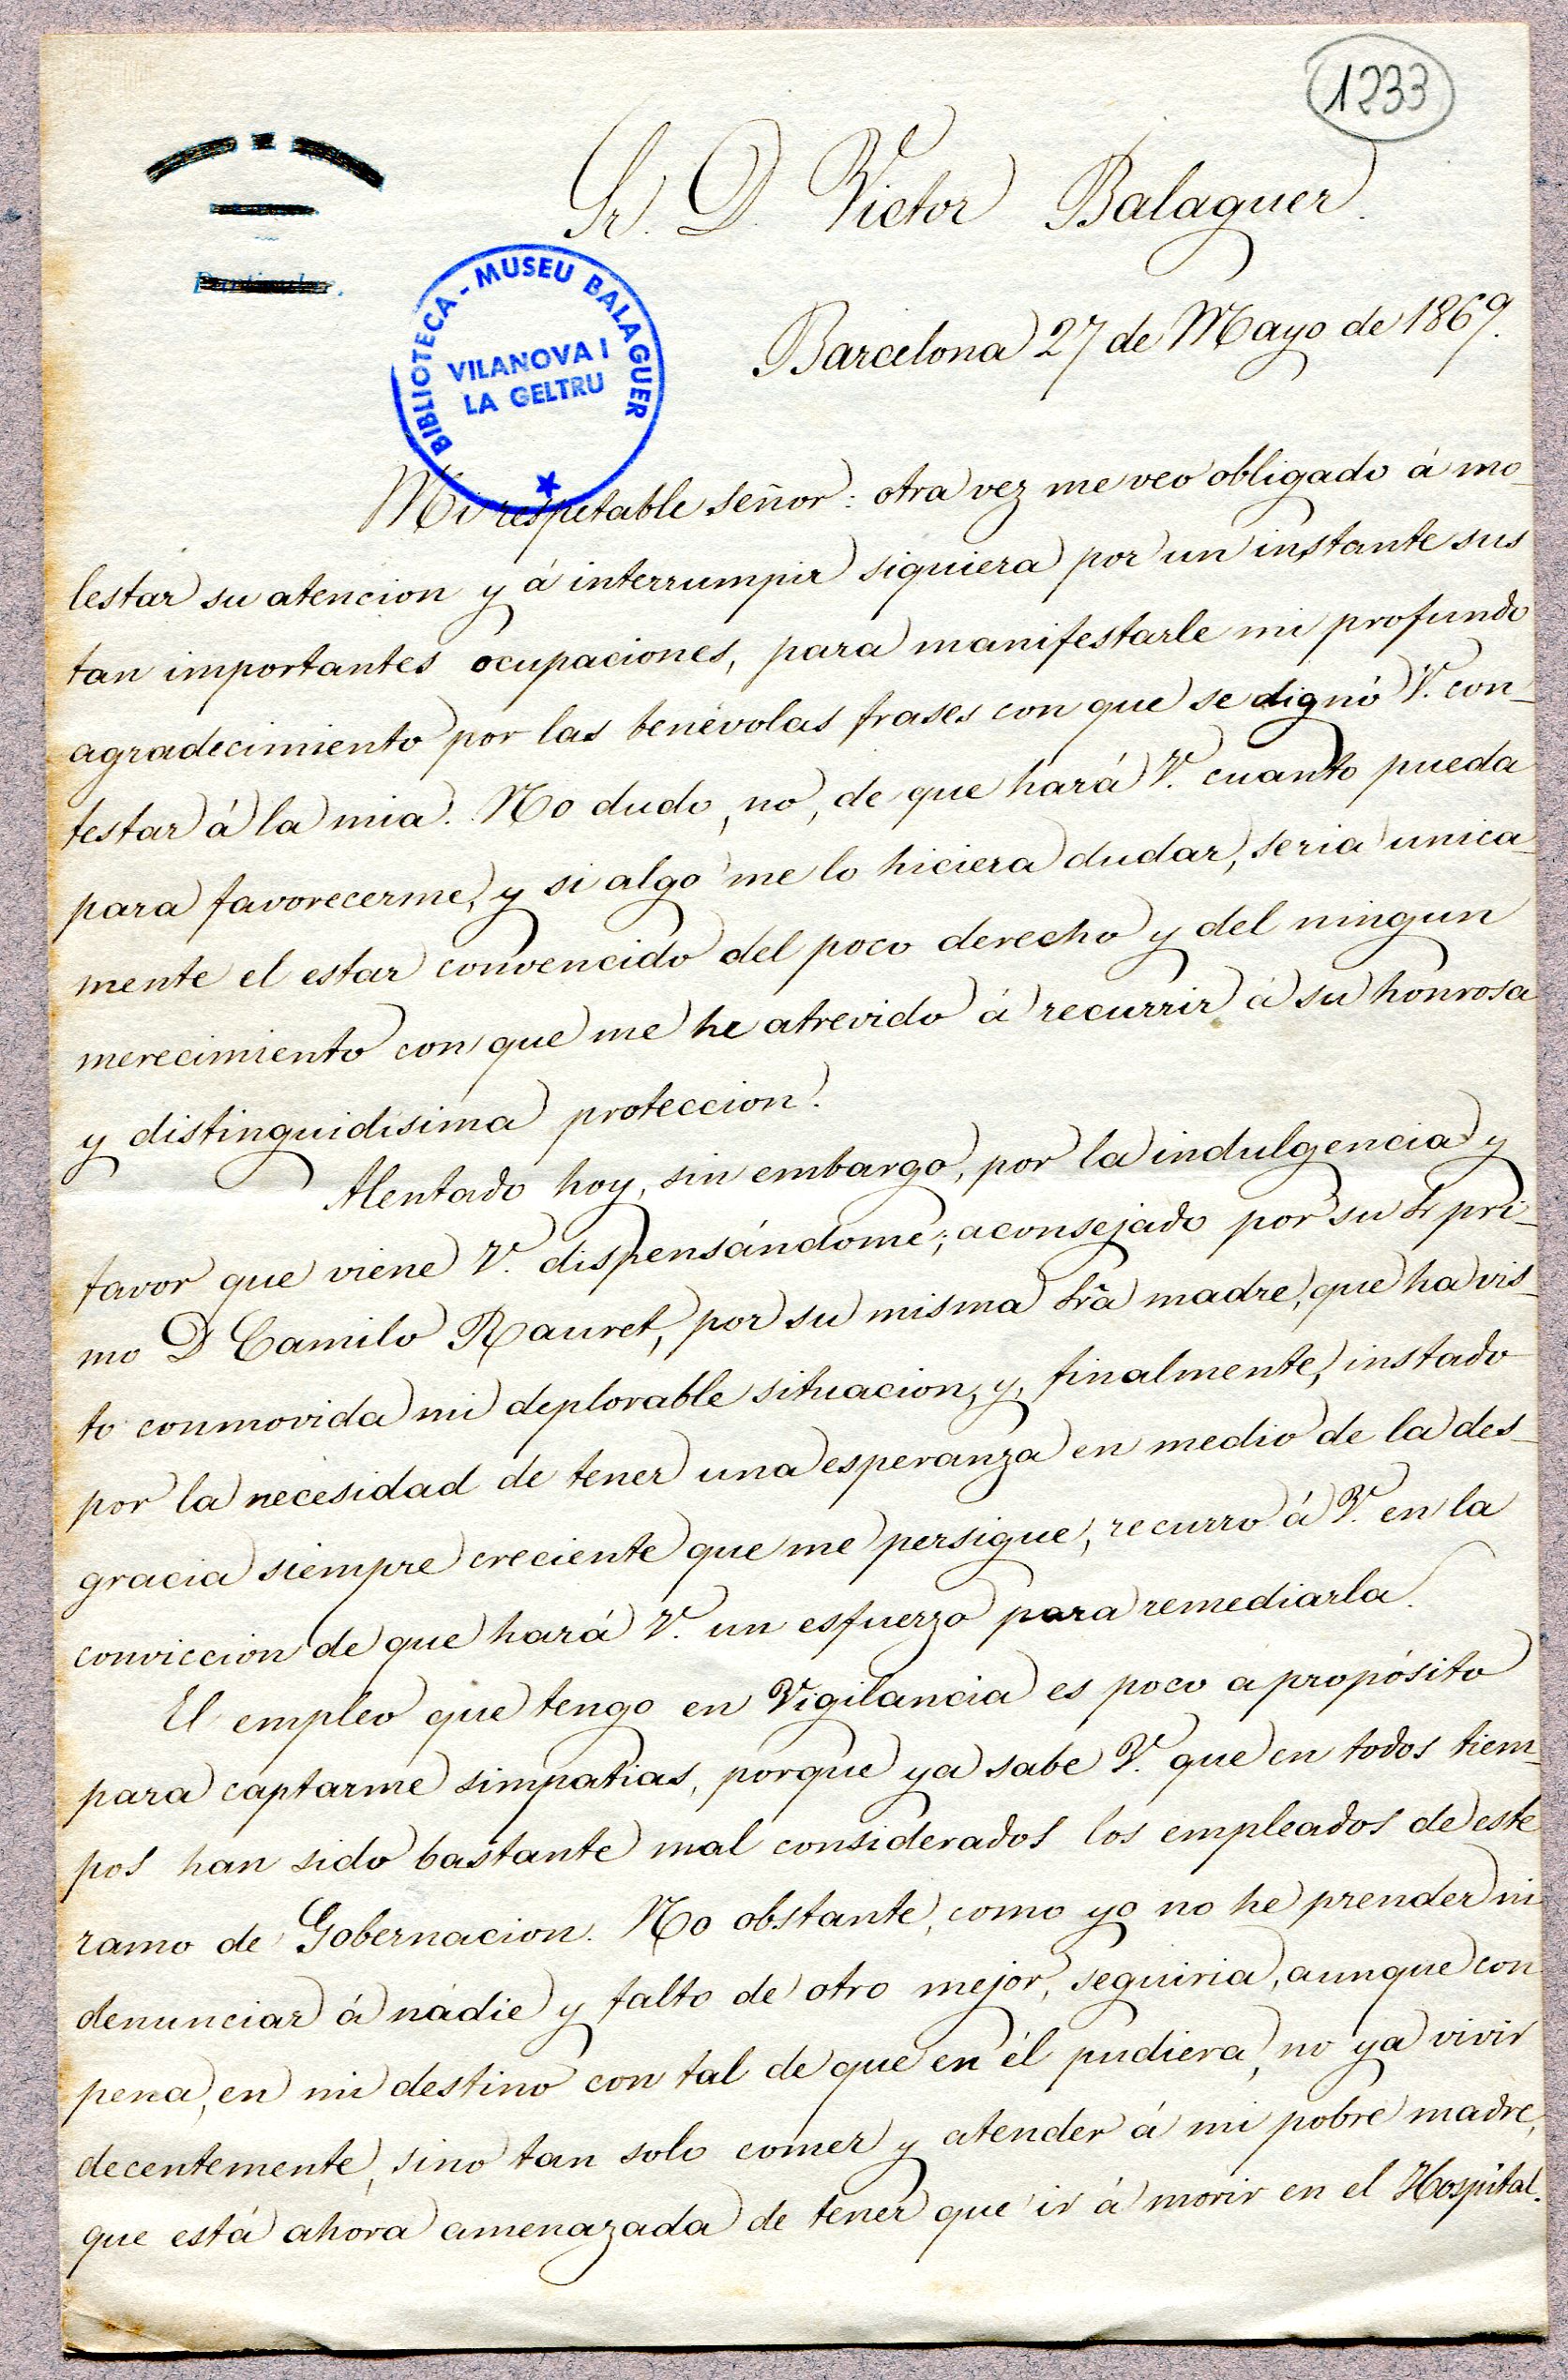 1233
Sr. D. Victor Balaguer.
BIBLIOTECA - MUSEU BALAGUER
VILANOVA I
LA GELTRU
Barcelona 27 de Mayo de 1869.
Mi respetable señor: otra vez me veo obligado á mo-
lestar su atencion y á interrumpir siquiera por un instante sus
tan importantes ocupaciones, para manifestarle mi profundo
agradecimiento por las benévolas frases con que se dignó V. con-
testar á la mia. No dudo, no, de que hará V. cuanto pueda
para favorecerme, y si algo me lo hiciera dudar, seria unica-
mente el estar convencido del poco derecho y del ningun
merecimiento con que me he atrevido á recurrir á su honrosa
y distinguidisima proteccion.
Alentado hoy, sin embargo, por la indulgencia y
favor que viene V. dispensándome; aconsejado por su Sr pri-
mo D Camilo Rauret, por su misma Sra madre, que ha vis-
to conmovida mi deplorable situacion, y, finalmente, instado
por la necesidad de tener una esperanza en medio de la des-
gracia siempre creciente que me persigue, recurro á V. en la
conviccion de que hará V. un esfuerzo para remediarla.
El empleo que tengo en Vigilancia es poco apropósito
para captarme simpatias, porque ya sabe V. que en todos tiem-
pos han sido bastante mal considerados los empleados de este
ramo de Gobernacion. No obstante, como yo no he prender ni
denunciar á nádie y falto de otro mejor, seguiria, aunque con
pena, en mi destino con tal de que en él pudiera, no ya vivir
decentemente, sino tan solo comer y atender á mi pobre madre,
que está ahora amenazada de tener que ir á morir en el Hospital.